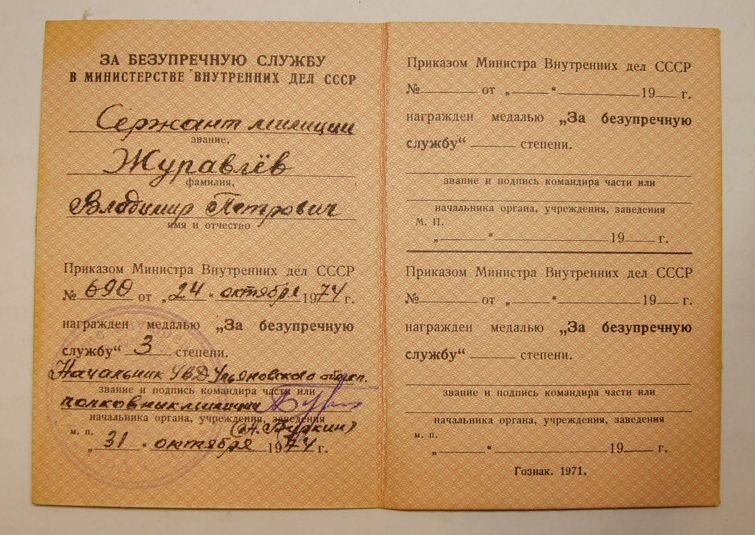 ЗА БЕЗУПРЕЧНУЮ СЛУЖБУ
В МИНИСТЕРСТВЕ ВНУТРЕННИХ ДЕЛ СССР
Сержант милиции
звание,
Журавлёв
фамилия,
Владимир Петрович
имя и отчество
Приказом Министра Внутренних дел СССР
№ 690 от „24" октября 1974 г.
награжден медалью „За безупречную
службу" 3 степени.
Начальник УВД Ульяновского облисп.
звание и подпись командира части или
полковник милиции
начальника органа, учреждения, заведения
м. п.
„31" октября 1974 г.
Приказом Министра Внутренних дел СССР
№ от „ " 19 г.
награжден медалью „За безупречную
службу" степени.
звание и подпись командира части или
начальника органа, учреждения, заведения
М. П.
„ " 19 г.
Приказом Министра Внутренних дел СССР
№ от „ " 19 г.
награжден медалью „За безупречную
службу" степени.
звание и подпись командира части или
начальника органа, учреждения, заведения
м. п.
„ " 19 г.
Гознак. 1971.